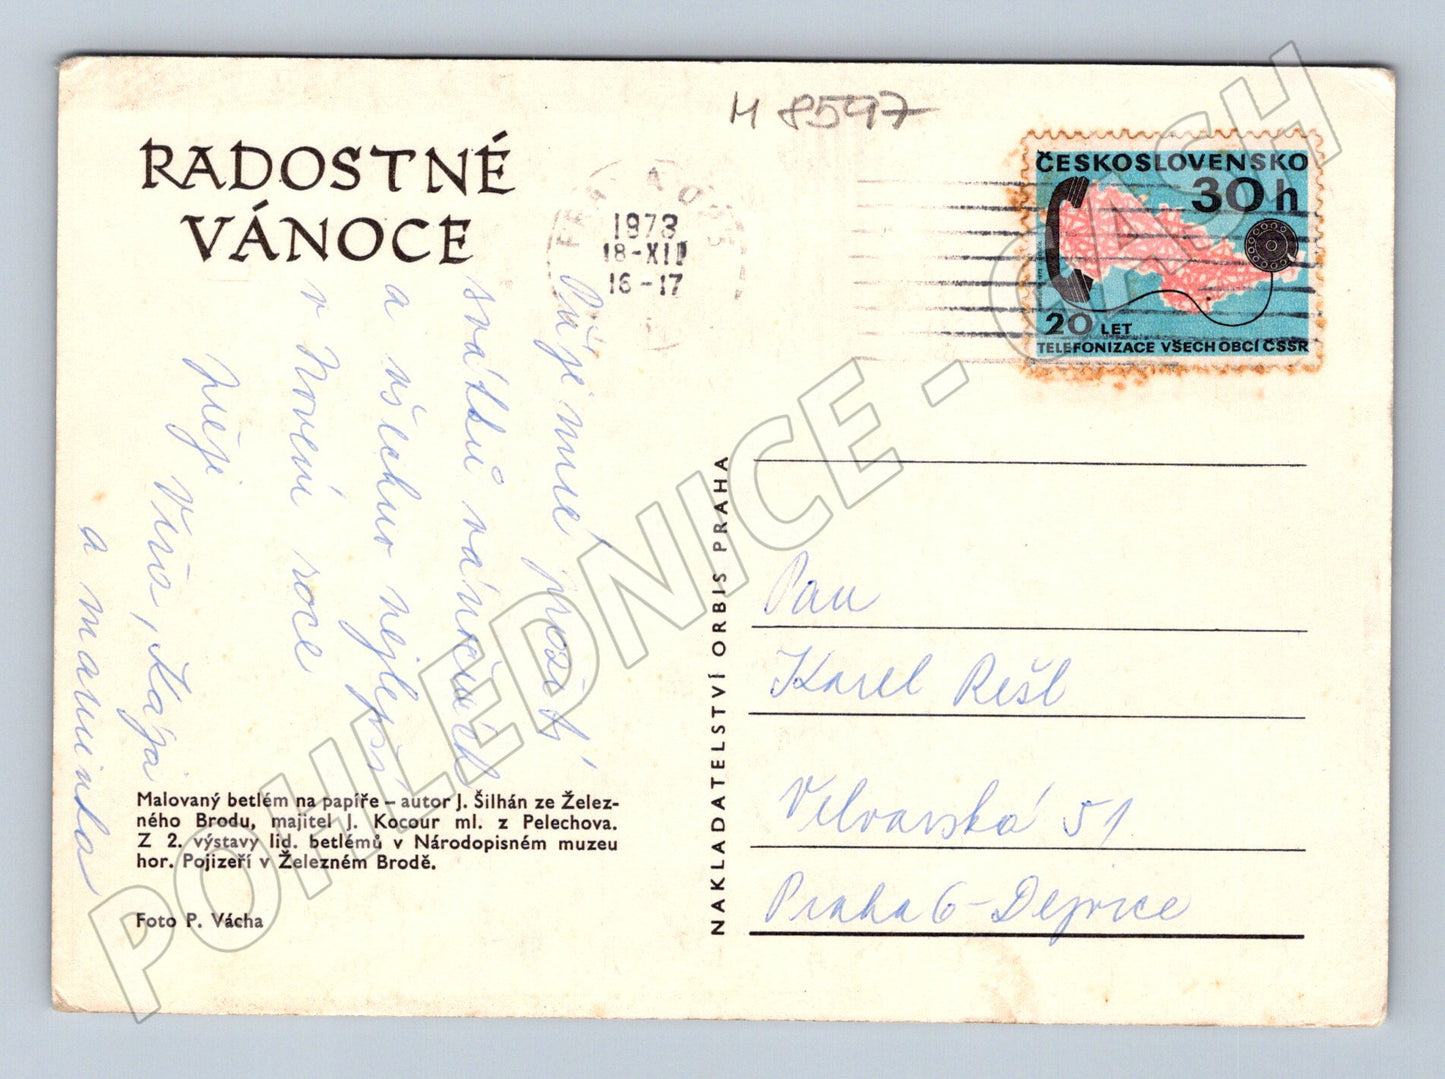 M 8597
RADOSTNÉ
VÁNOCE
1973
18-XII
16-17
ČESKOSLOVENSKO
30h
20 LET
TELEFONIZACE VŠECH OBCÍ ČSSR
prožití
svátků vánočních
a všechno nejlepší
v Novém roce
přeje
Věra, Kája
a maminka
Malovaný betlém na papíře – autor J. Šilhán ze Želez-
ného Brodu, majitel J. Kocour ml. z Pelechova.
Z 2. výstavy lid. betlémů v Národopisném muzeu
hor. Pojizeří v Železném Brodě.
Foto P. Vácha
NAKLADATELSTVÍ ORBIS PRAHA
Pan
Karel Rešl
Velvarská 51
Praha 6-Dejvice
POHLEDNICE - CASH